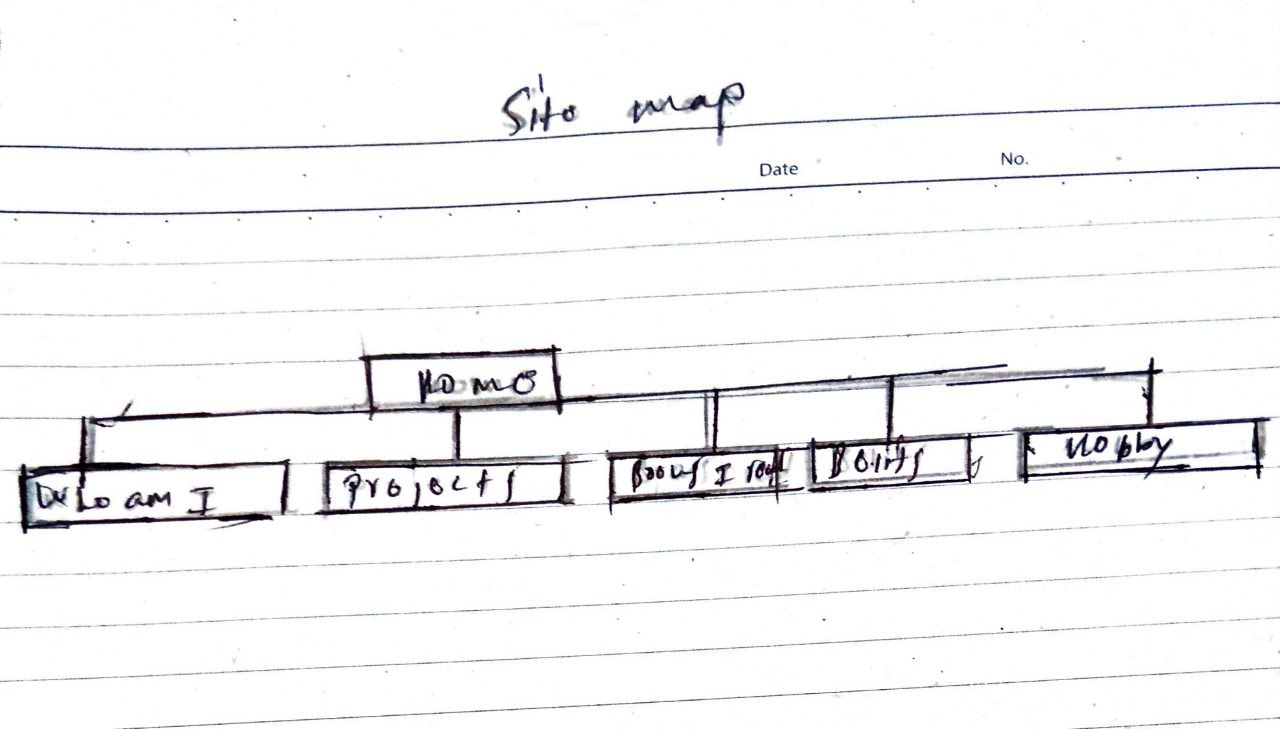 Site map
Date No.
Home
Who am I
Projects
Books I read
Hobby